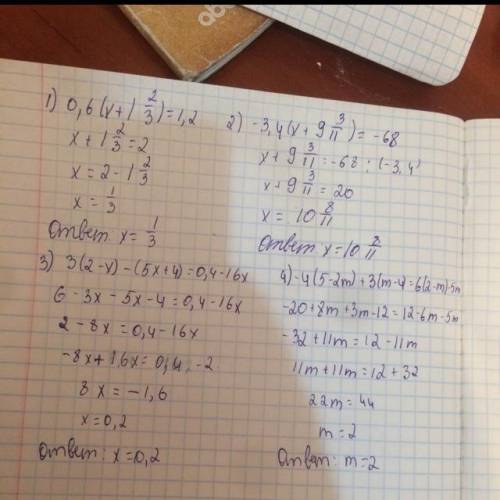 1) 0,6(x+1 2/3)=1,2
x+1 2/3=2
x=2-1 2/3
x=1/3
Ответ x=1/3
2) -3,4(x+9 3/11)=-68
x+9 3/11=-68:(-3,4)
x+9 3/11=20
x=10 8/11
Ответ x=10 8/11
3) 3(2-x)-(5x+4)=0,4-16x
6-3x-5x-4=0,4-16x
2-8x=0,4-16x
-8x+16x=0,4-2
8x=-1,6
x=0,2
Ответ: x=0,2
4) -4(5-2m)+3(m-4)=6(2-m)-5m
-20+8m+3m-12=12-6m-5m
-32+11m=12-11m
11m+11m=12+32
22m=44
m=2
Ответ: m=2